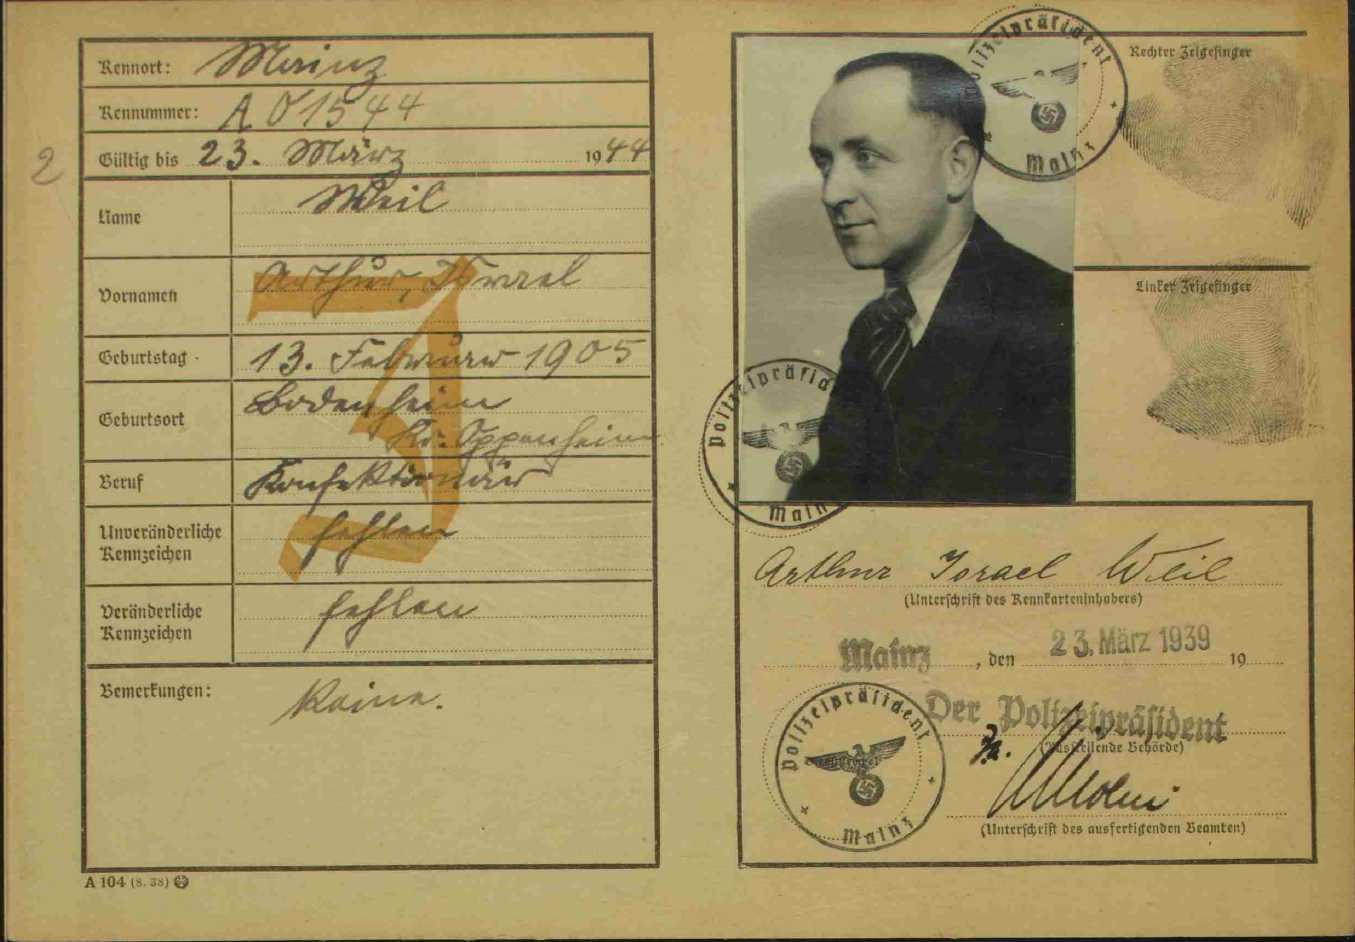 2
Kennort: Mainz
Kennummer: A 01544
Gültig bis 23. März 1944
Name Weil
Vornamen Arthur, Israel
Geburtstag 13. Februar 1905
Geburtsort Bodenheim
Kr. Oppenheim
Beruf Konfektionär
Unveränderliche Kennzeichen fehlen
Veränderliche Kennzeichen fehlen
Bemerkungen: Keine.
J
A 104 (8. 38)
Rechter Zeigefinger
Linker Zeigefinger
Polizeipräsident Mainz
Polizeipräsident Mainz
Arthur Israel Weil
(Unterschrift des Kennkarteninhabers)
Mainz, den 23. März 1939 19
Der Polizeipräsident
(Ausstellende Behörde)
Polizeipräsident Mainz
(Unterschrift des ausfertigenden Beamten)